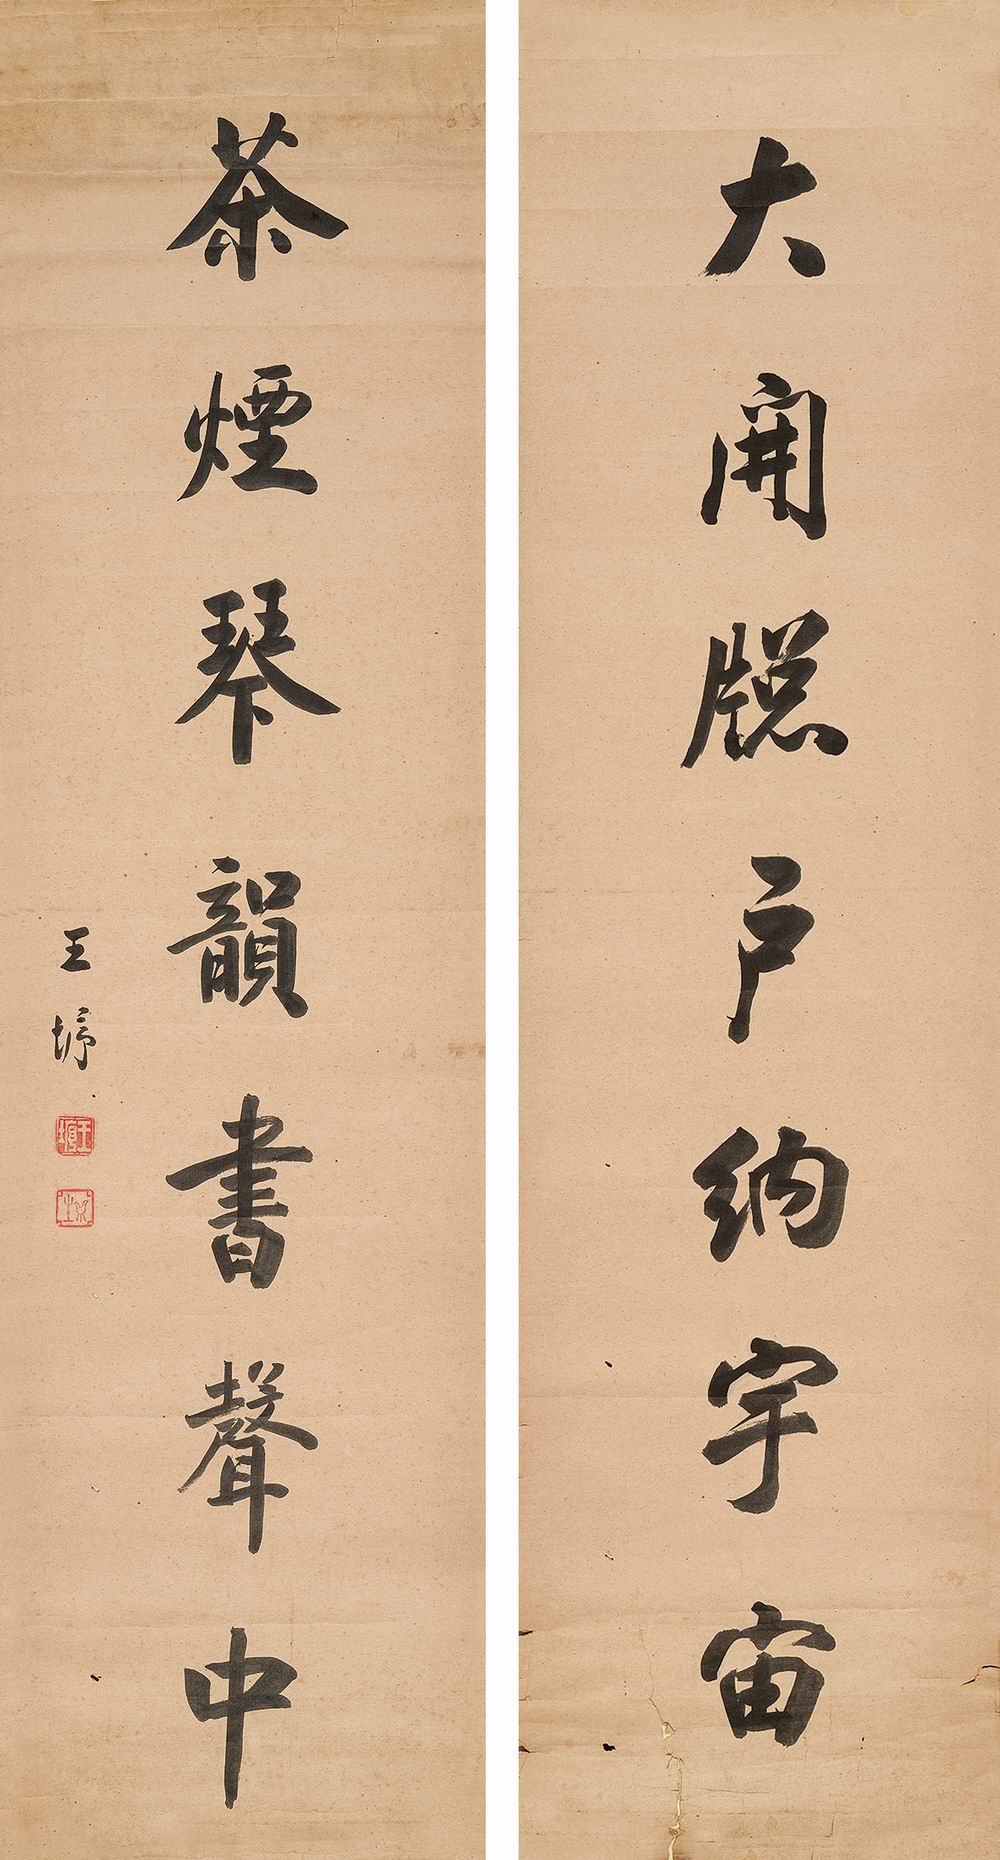 大開牕戶納宇宙
茶煙琴韻書聲中
王垿
王垿